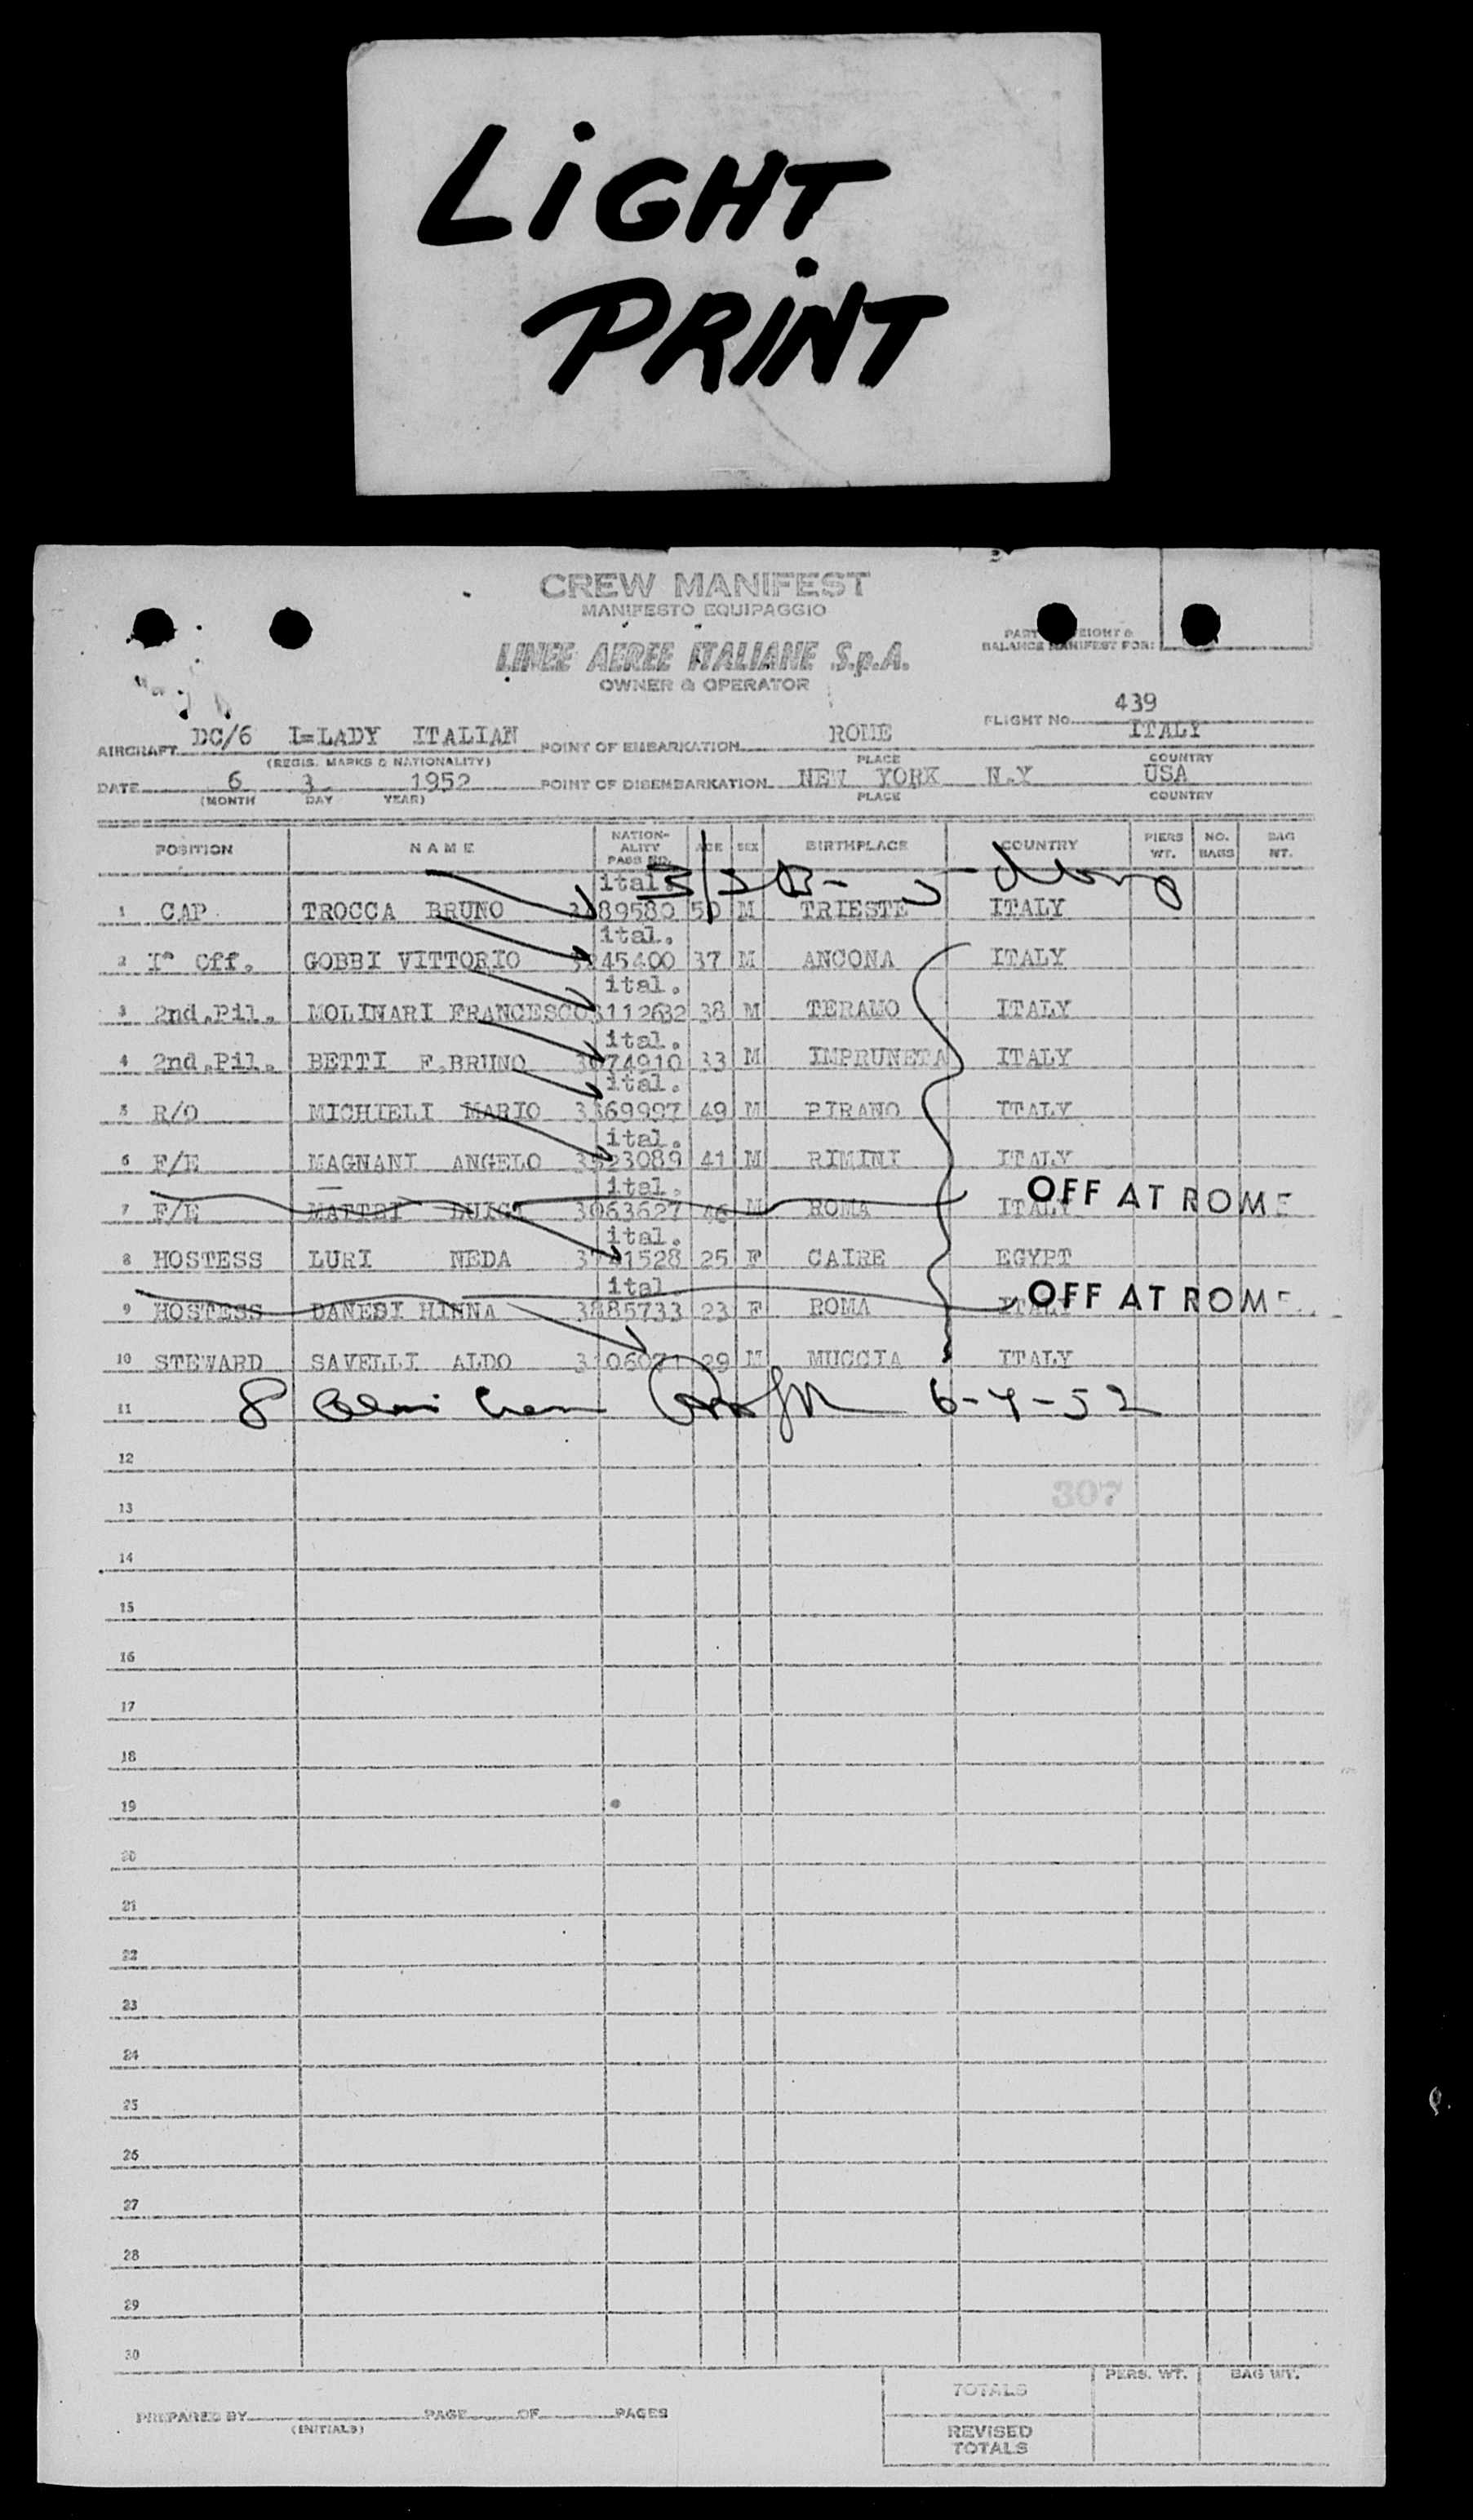 LiGHT
PRiNT
CREW MANIFEST
MANIFESTO EQUIPAGGIO
LINEE AEREE ITALIANE S.p.A.
OWNER & OPERATOR
PART EIGHT &
BALANCE MANIFEST FOR:
FLIGHT NO. 439
AIRCRAFT DC/6 I=LADY ITALIAN POINT OF EMBARKATION ROME ITALY
(REGIS. MARKS & NATIONALITY) PLACE COUNTRY
DATE 6 3. 1952 POINT OF DISEMBARKATION NEW YORK N.Y USA
(MONTH DAY YEAR) PLACE COUNTRY
POSITION NAME NATION-ALITY PASS NO. AGE SEX BIRTHPLACE COUNTRY PIERS WT. NO. BAGS BAG WT.
ital.
1 CAP. TROCCA BRUNO 89580 50 M TRIESTE ITALY
ital.
2 I° Off. GOBBI VITTORIO 45400 37 M ANCONA ITALY
ital.
3 2nd.Pil. MOLINARI FRANCESCO 3112632 38 M TERAMO ITALY
ital.
4 2nd.Pil. BETTI F.BRUNO 3074910 33 M IMPRUNETA ITALY
ital.
5 R/O MICHIELI MARIO 3369997 49 M PIRANO ITALY
ital.
6 F/E MAGNANI ANGELO 3523089 41 M RIMINI ITALY
ital.
7 F/E MATTEI LUIGI 3063627 46 M ROMA ITALY OFF AT ROME
ital.
8 HOSTESS LURI NEDA 3741528 25 F CAIRE EGYPT
ital.
9 HOSTESS DANESI MINNA 3885733 23 F ROMA ITALY OFF AT ROME
10 STEWARD SAVELLI ALDO 310607 29 M MUCCIA ITALY
11 8 6-4-52
12
13 307
14
15
16
17
18
19
20
21
22
23
24
25
26
27
28
29
30
TOTALS PERS. WT. BAG WT.
PREPARED BY PAGE OF PAGES
(INITIALS)
REVISED
TOTALS